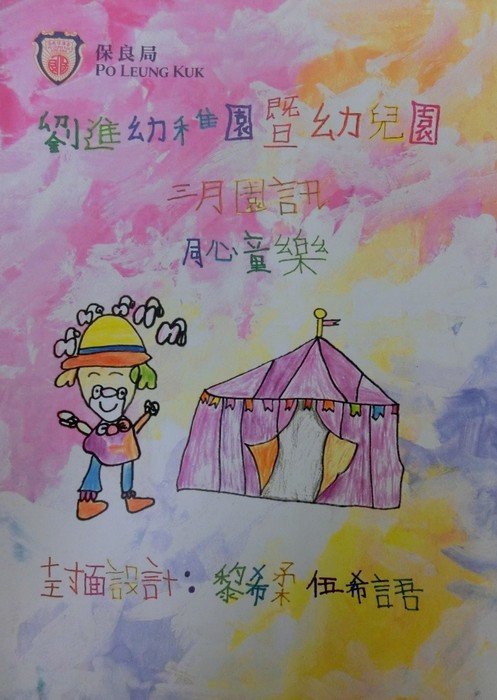 保良局
PO LEUNG KUK
劉進幼稚園暨幼兒園
三月園訊
同心童樂
封面設計：黎希柔 伍希語